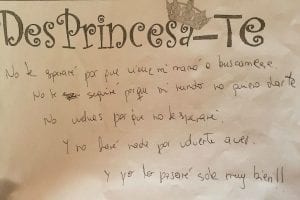 DesPrincesa-Te
No te esperaré por que viene mi mamá a buscarme.
No te seguiré porque mi rumbo no quiero darte
No vuelvas por que no te esperaré.
Y no haré nada por volverte a ver.
Y yo lo pasaré sola muy bien!!